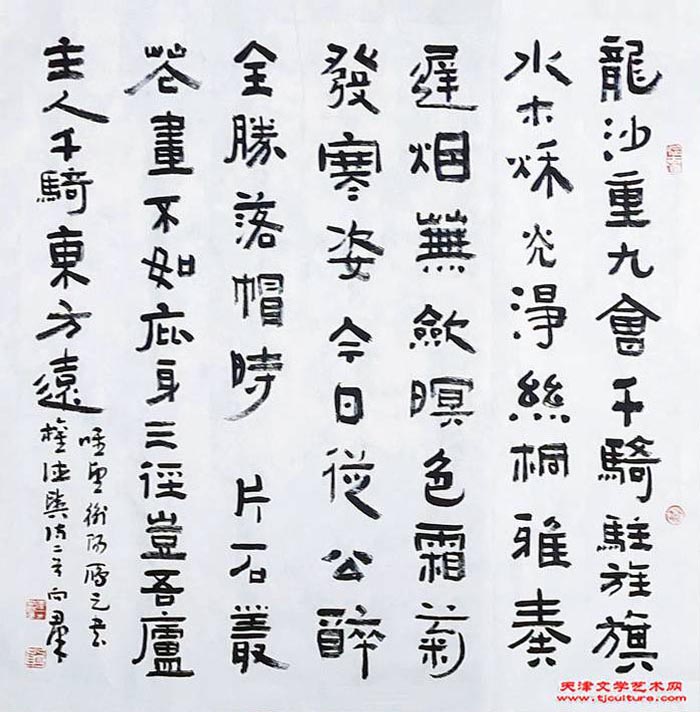 龍沙重九會千騎駐旌旗
水木秋光淨絲桐雅奏
遲烟蕪斂暝色霜菊
發寒姿今日從公醉
全勝落帽時 片石叢
花畫不如庇身三徑豈吾廬
主人千騎東方遠
唯望衡陽雁足書
權德輿詩二首 向群
天津文学艺术网
www.tjculture.com